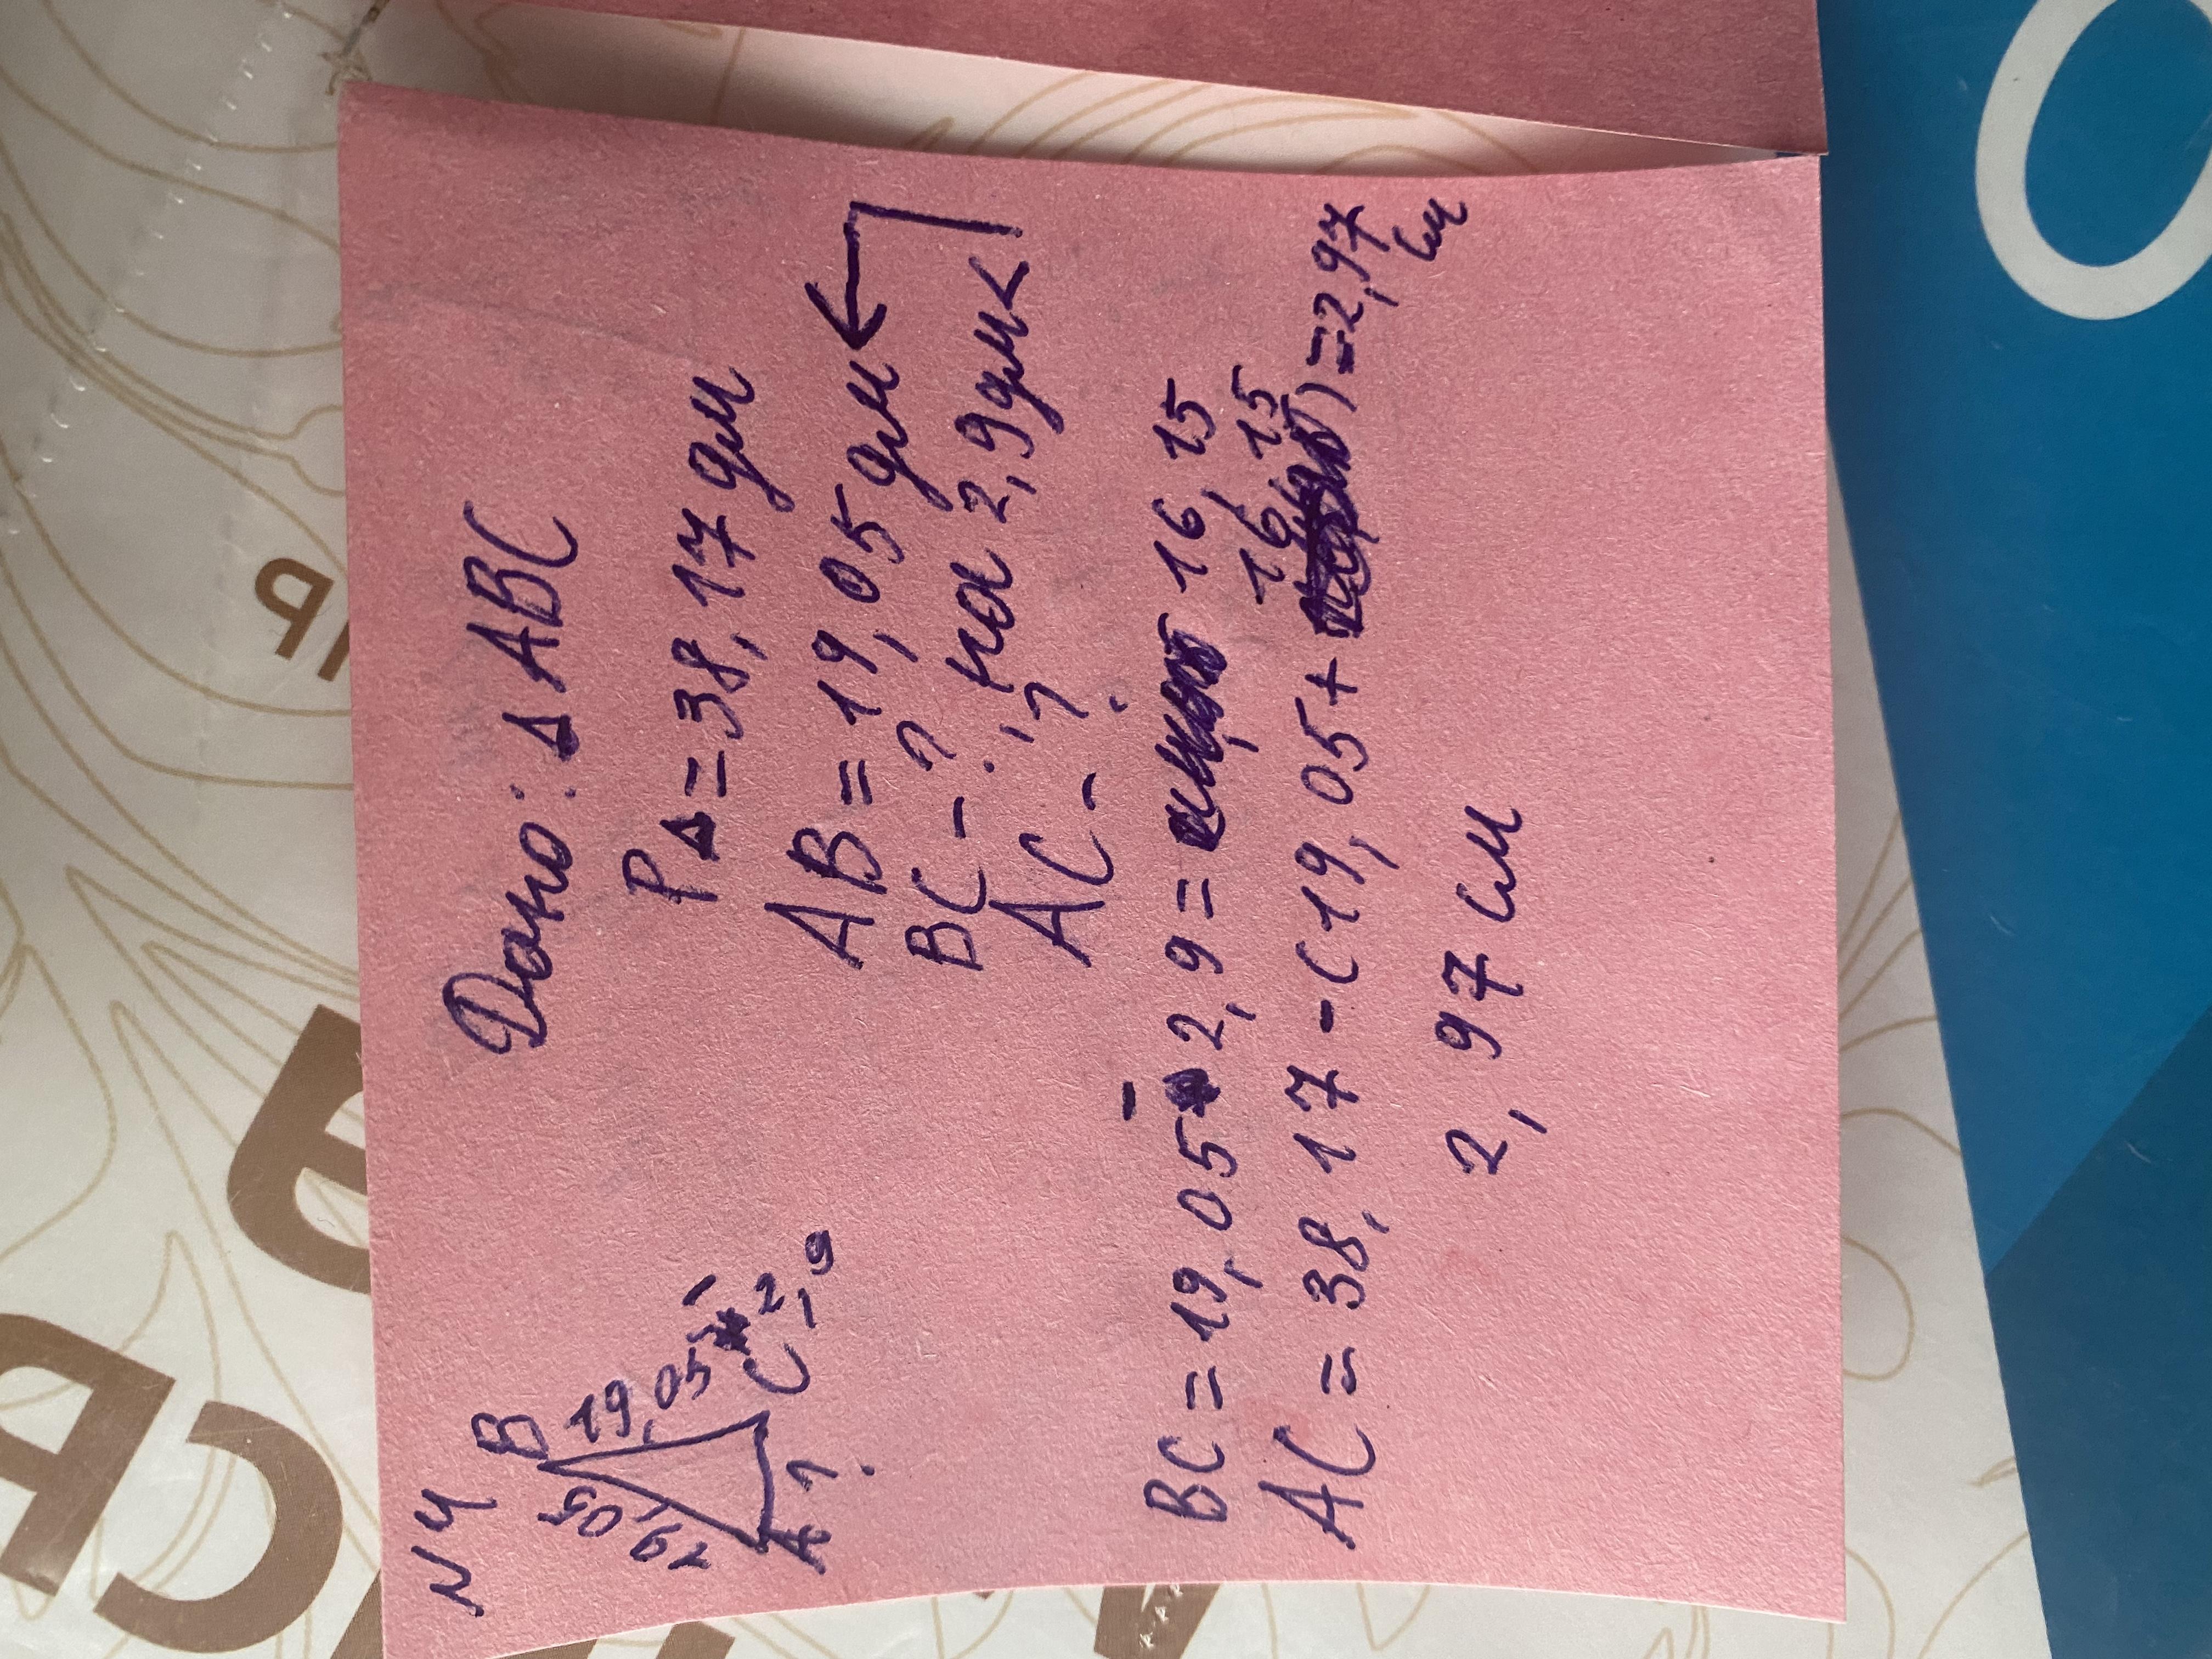 N4
B
19,05
19,05 - 2,9
A
?
C
Дано: Δ ABC
PΔ = 38,17 дм
AB = 19,05 дм
BC - ? на 2,9 дм <
AC - ?
BC = 19,05 - 2,9 = 16,15
AC = 38,17 - (19,05 + 16,15) = 2,97 см
2,97 см